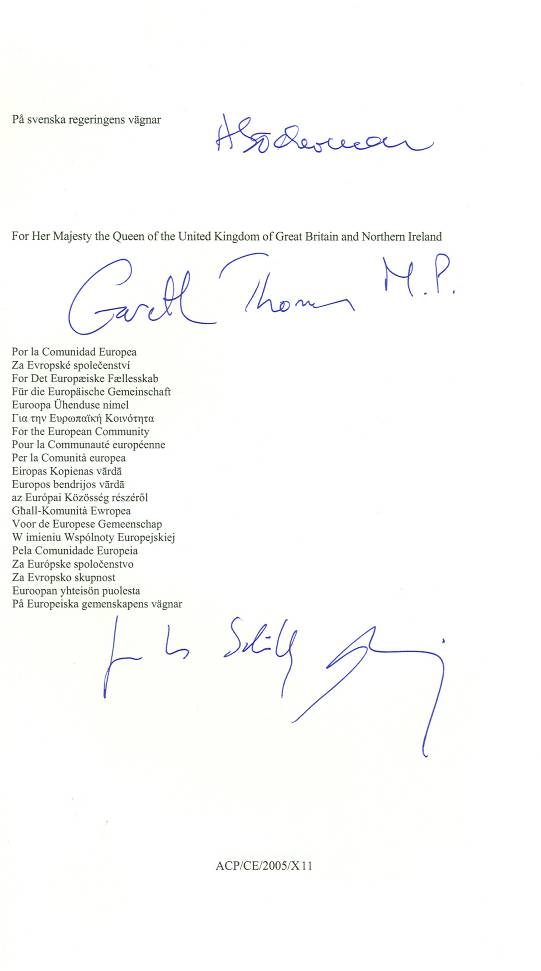 På svenska regeringens vägnar
For Her Majesty the Queen of the United Kingdom of Great Britain and Northern Ireland
Gareth Thomas M.P.
Por la Comunidad Europea
Za Evropské společenství
For Det Europæiske Fællesskab
Für die Europäische Gemeinschaft
Euroopa Ühenduse nimel
Για την Ευρωπαϊκή Κοινότητα
For the European Community
Pour la Communauté européenne
Per la Comunità europea
Eiropas Kopienas vārdā
Europos bendrijos vārdā
az Európai Közösség részéről
Għall-Komunità Ewropea
Voor de Europese Gemeenschap
W imieniu Wspólnoty Europejskiej
Pela Comunidade Europeia
Za Európske spoločenstvo
Za Evropsko skupnost
Euroopan yhteisön puolesta
På Europeiska gemenskapens vägnar
ACP/CE/2005/X11